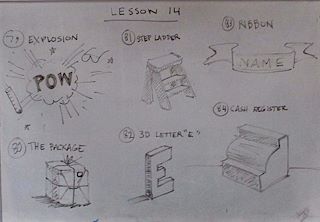 LESSON 14
79 EXPLOSION
POW
81 STEP LADDER
83 RIBBON
NAME
80 THE PACKAGE
82 3D LETTER "E"
E
84 CASH REGISTER